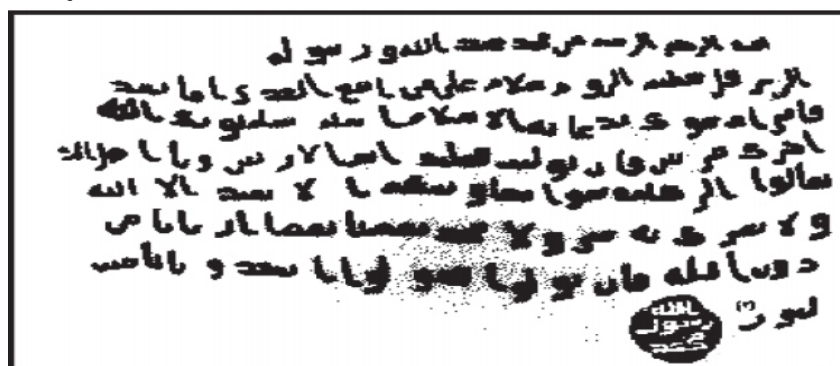 الرحمن الرحيم من محمد عبد الله و رسوله
الى هرقل عظيم الروم سلام على من اتبع الهدى اما بعد
فانى ادعوك بدعاية الاسلام اسلم تسلم يوتك الله
اجرك مرتين فان توليت فعليك اثم الاريسين ويا اهل
تعالوا الى كلمة سوا بيننا وبينكم ا لا نعبد الا الله
و لا نشرك به شيا و لا يتخذ بعضنا بعضا اربابا من
دون الله فان تولوا فقولوا اشهدوا بانا مس
لمون
الله
رسول
محمد